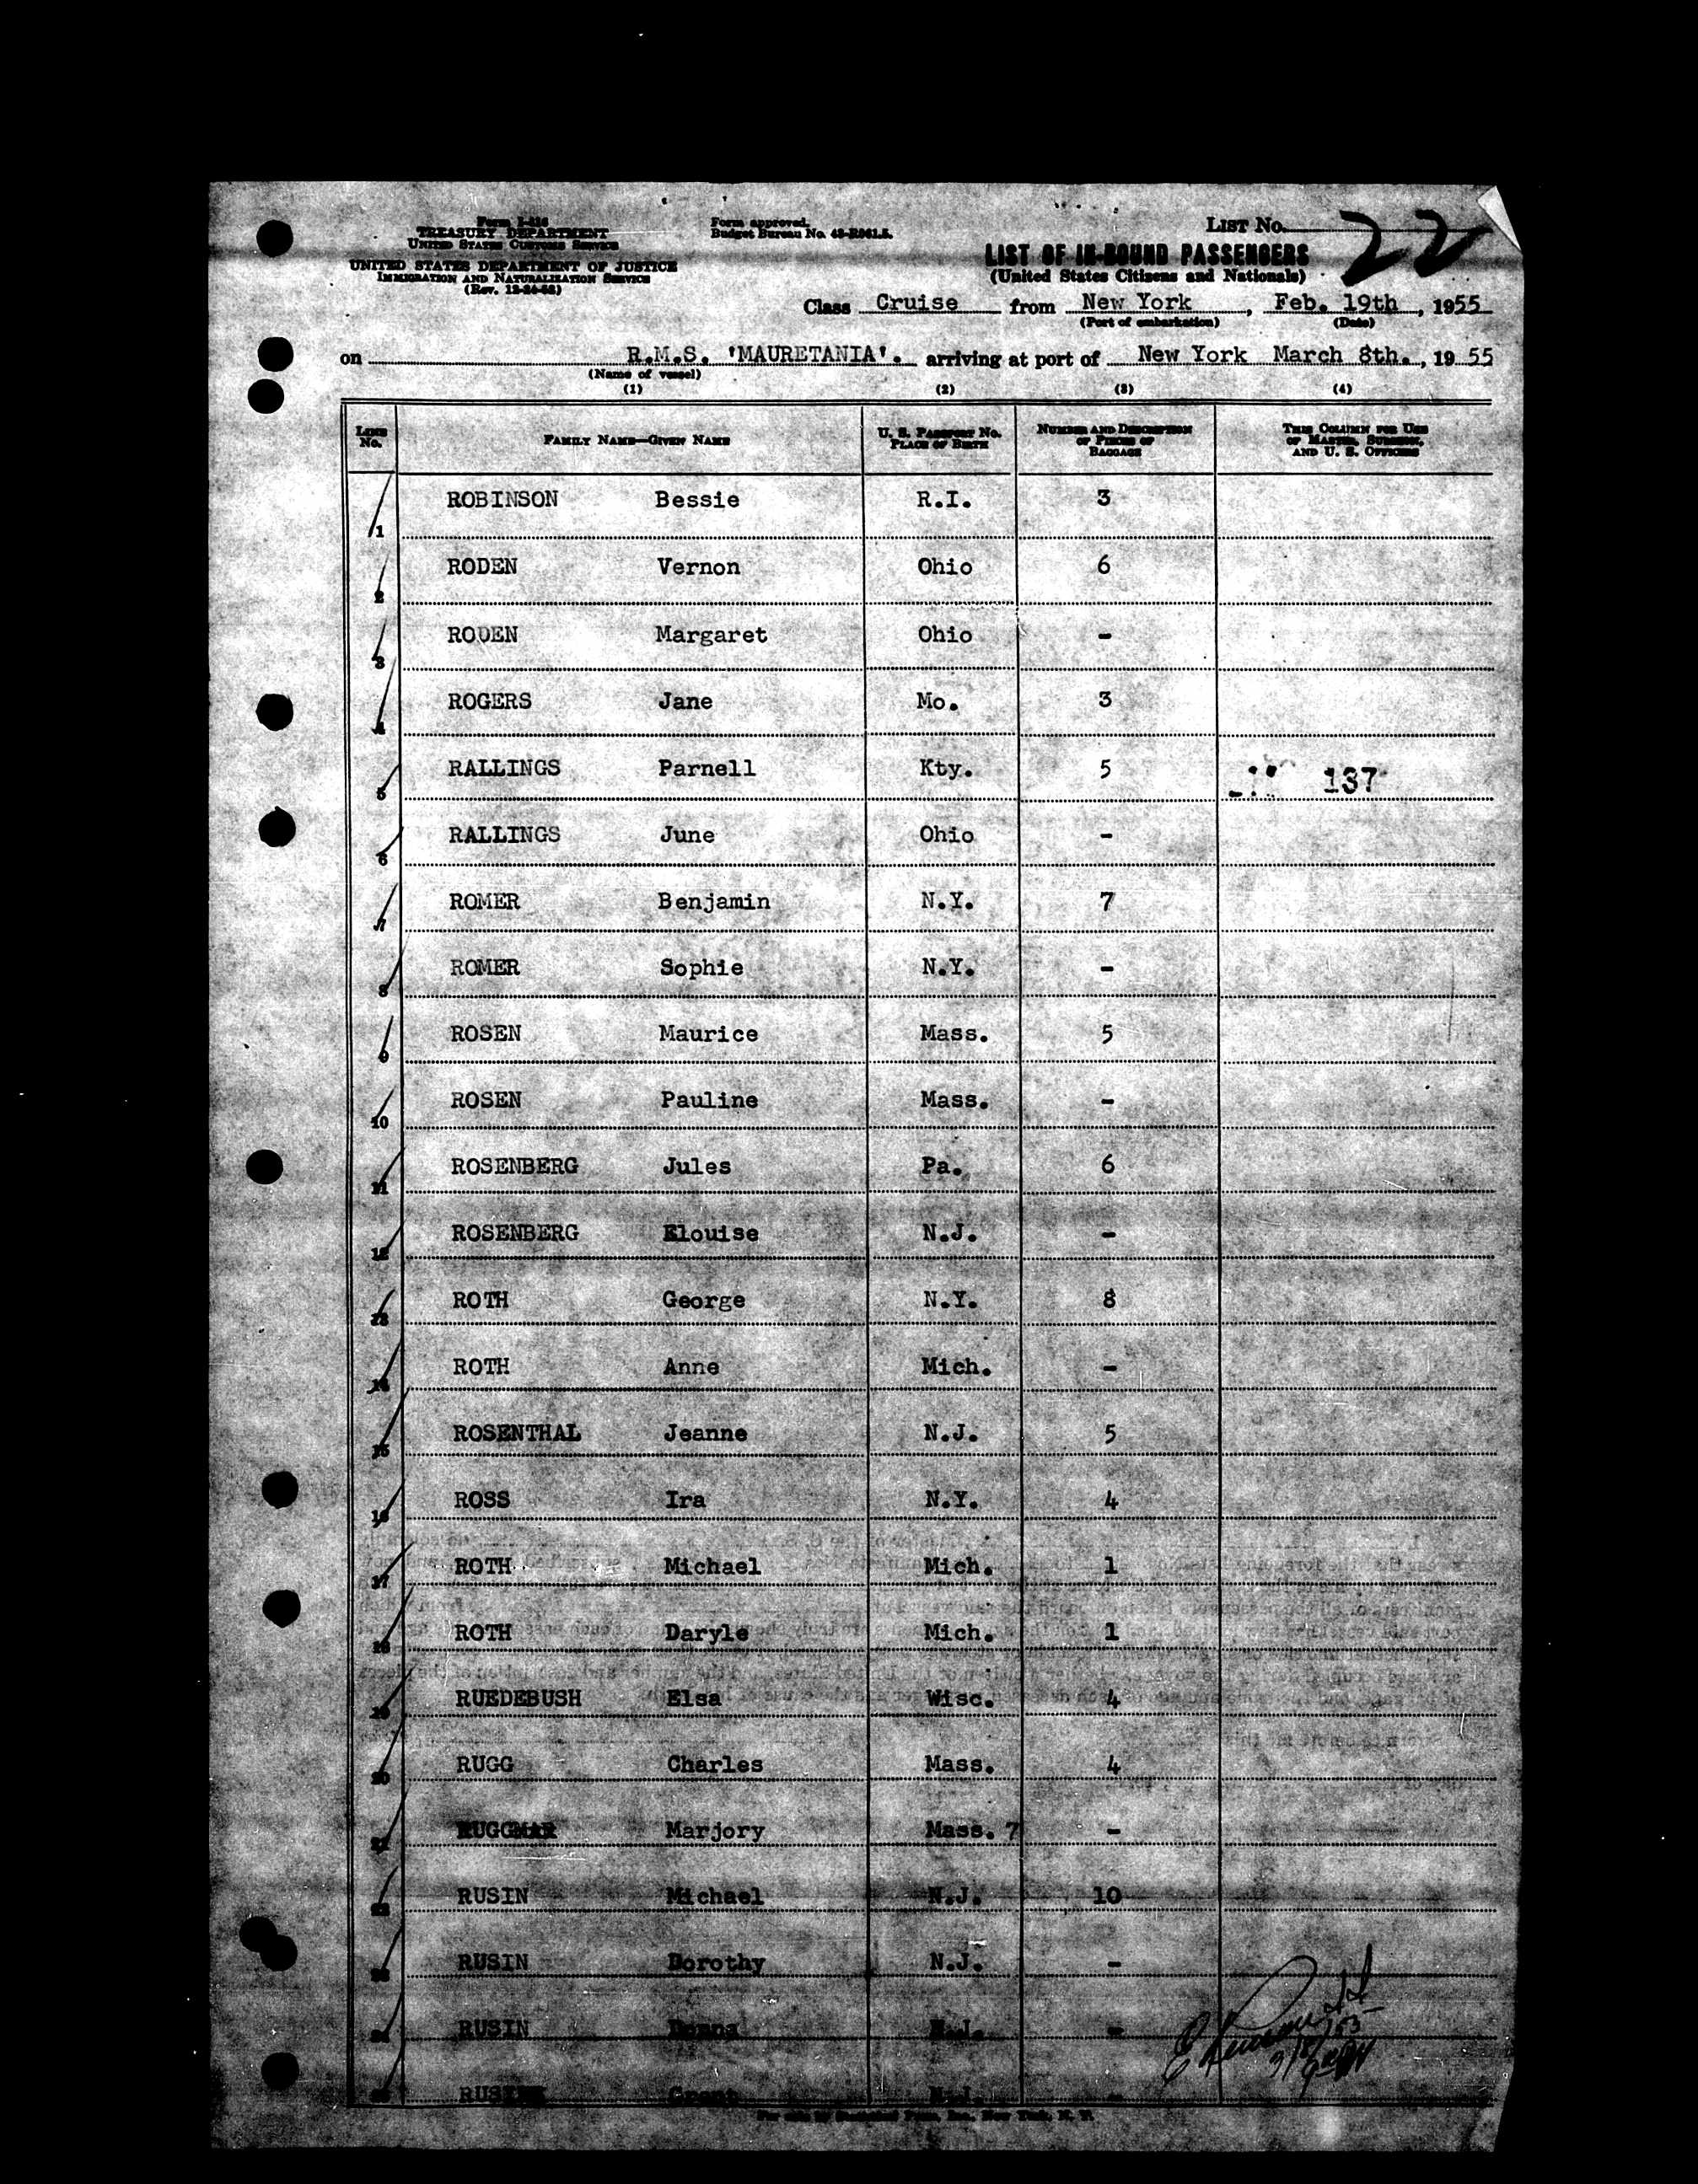 Form I-416
TREASURY DEPARTMENT
UNITED STATES CUSTOMS SERVICE
UNITED STATES DEPARTMENT OF JUSTICE
IMMIGRATION AND NATURALIZATION SERVICE
Form approved.
Budget Bureau No. 43-R061.5.
LIST No. 22
LIST OF IN-BOUND PASSENGERS
(United States Citizens and Nationals)
Class Cruise from New York, Feb. 19th, 1955
(Port of embarkation) (Date)
on R.M.S. 'MAURETANIA'. arriving at port of New York March 8th., 1955
(Name of vessel)
(1) (2) (3) (4)
LINE No. FAMILY NAME—GIVEN NAME U. S. PASSPORT No. PLACE OF BIRTH NUMBER AND DESCRIPTION OF PIECES OF BAGGAGE THIS COLUMN FOR USE OF MASTER, SURGEON, AND U. S. OFFICERS
1 ROBINSON Bessie R.I. 3
2 RODEN Vernon Ohio 6
3 RODEN Margaret Ohio -
4 ROGERS Jane Mo. 3
5 RALLINGS Parnell Kty. 5 137
6 RALLINGS June Ohio -
7 ROMER Benjamin N.Y. 7
8 ROMER Sophie N.Y. -
9 ROSEN Maurice Mass. 5
10 ROSEN Pauline Mass. -
11 ROSENBERG Jules Pa. 6
12 ROSENBERG Elouise N.J. -
13 ROTH George N.Y. 8
14 ROTH Anne Mich. -
15 ROSENTHAL Jeanne N.J. 5
16 ROSS Ira N.Y. 4
17 ROTH Michael Mich. 1
18 ROTH Daryle Mich. 1
19 RUEDEBUSH Elsa Wisc. 4
20 RUGG Charles Mass. 4
21 RUGG Marjory Mass. 7 -
22 RUSIN Michael N.J. 10
23 RUSIN Dorothy N.J. -
24 RUSIN Donna N.J. -
25 RUSIN Grant N.J. -